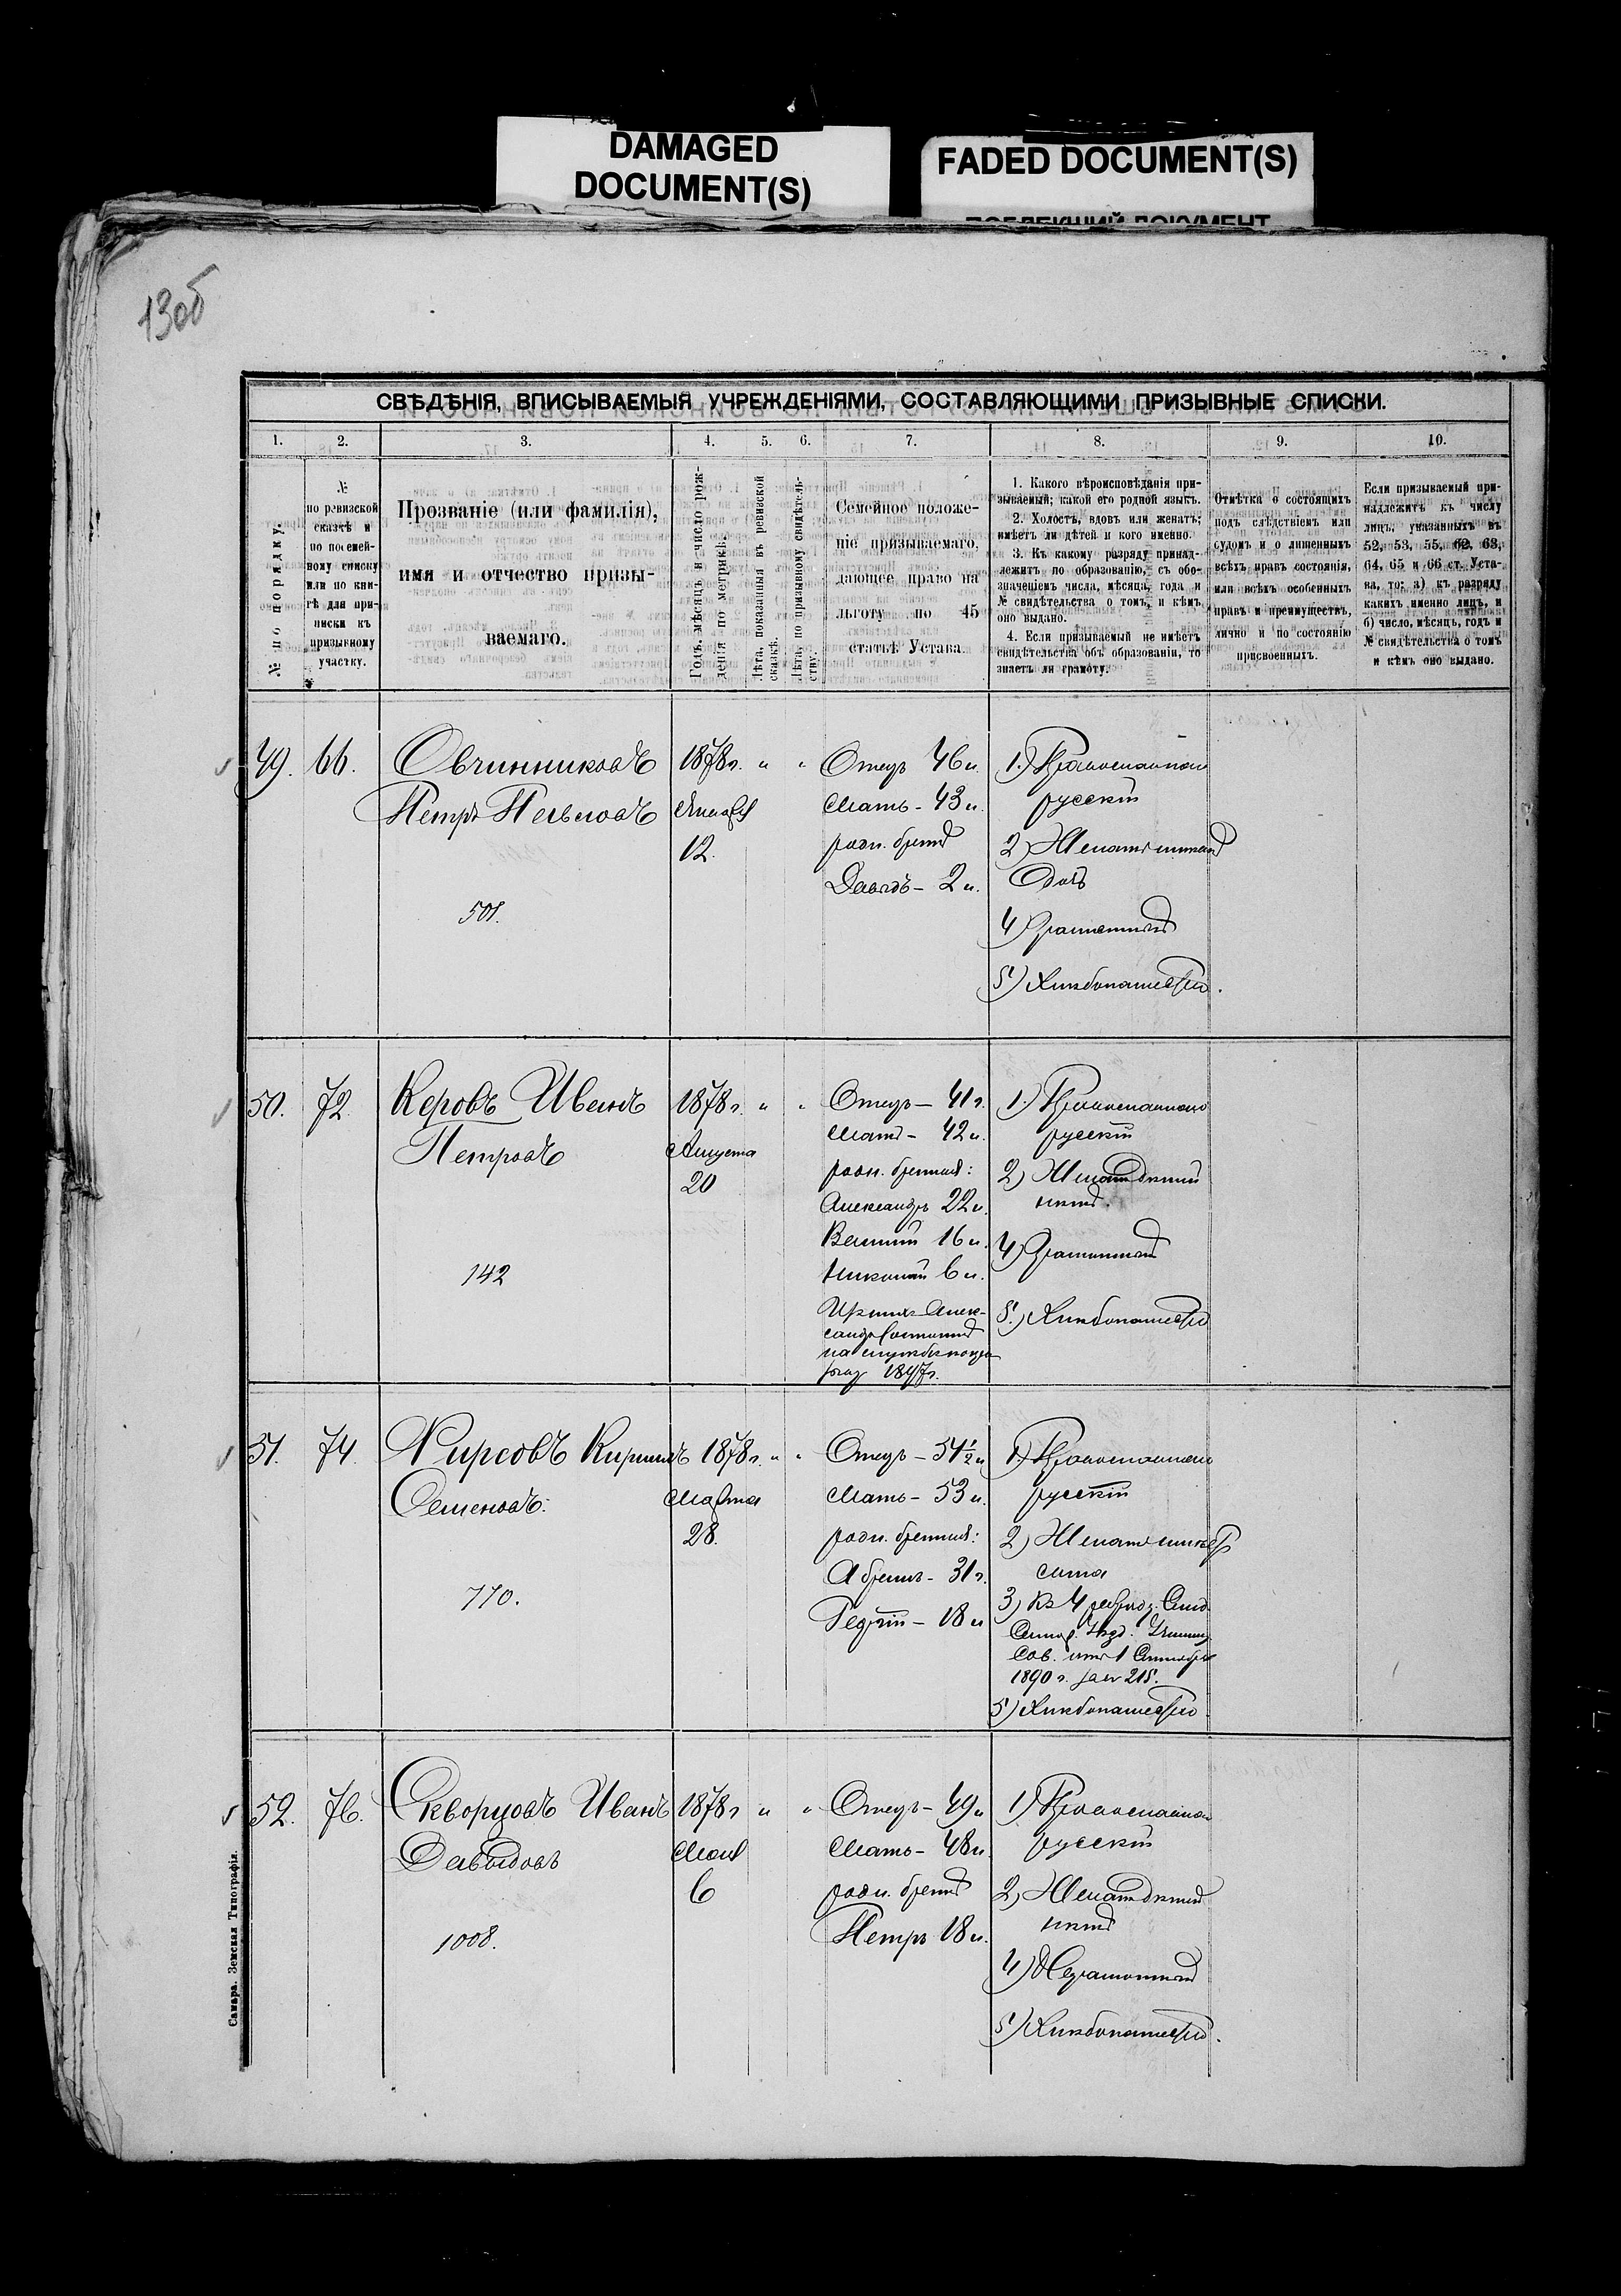 DAMAGED
DOCUMENT(S)
FADED DOCUMENT(S)
ПОБЛЕКШИЙ ДОКУМЕНТ
130б
СВѢДѢНІЯ, ВПИСЫВАЕМЫЯ УЧРЕЖДЕНІЯМИ, СОСТАВЛЯЮЩИМИ ПРИЗЫВНЫЕ СПИСКИ.
1. 2. 3. 4. 5. 6. 7. 8. 9. 10.
№ по порядку.
№
по ревизской
сказкѣ и
по посемей-
ному списку
или по кни-
гѣ для при-
писки къ
призывному
участку.
Прозваніе (или фамилія),
имя и отчество призы-
ваемаго.
Годъ, мѣсяцъ и число рож-
денія по метрикѣ.
Лѣта, показанныя въ ревизской
сказкѣ.
Лѣта, по призывному свидѣтель-
ству.
Семейное положе-
ніе призываемаго,
дающее право на
льготу по 45
статьѣ Устава.
1. Какого вѣроисповѣданія при-
зываемый; какой его родной языкъ.
2. Холостъ, вдовъ или женатъ;
имѣетъ ли дѣтей и кого именно.
3. Къ какому разряду принад-
лежитъ по образованію, съ обо-
значеніемъ числа, мѣсяца, года и
№ свидѣтельства о томъ, и кѣмъ
оно выдано.
4. Если призываемый не имѣетъ
свидѣтельства объ образованіи, то
знаетъ ли грамоту.
Отмѣтка о состоящихъ
подъ слѣдствіемъ или
судомъ и о лишенныхъ
всѣхъ правъ состоянія,
или всѣхъ особенныхъ
правъ и преимуществъ,
лично и по состоянію
присвоенныхъ.
Если призываемый при-
надлежитъ къ числу
лицъ, указанныхъ въ
52, 53, 55, 62, 63,
64, 65 и 66 ст. Уста-
ва, то: а) къ разряду
какихъ именно лицъ, и
б) число, мѣсяцъ, годъ и
№ свидѣтельства о томъ
и кѣмъ оно выдано.
49. 66. Овчинниковъ
Петръ Павловъ
501.
1878 г. " "
12.
Отецъ 46 л.
Мать - 43 л.
родн. братъ
Давыдъ - 2 л.
1.) Православнаго
русскій
2) Женатъ
4) Грамотный
5) Хлѣбопашество.
50. 72. Керовъ Иванъ
Петровъ
142
1878 г. " "
Августа
20
Отецъ - 41 г.
Мать - 42 л.
родн. братья:
Александръ 22 л.
Василій 16 л.
Николай 6 л.
Изъ нихъ Алек-
сандръ состоитъ
на службѣ
1897 г.
1.) Православнаго
русскій
2) Женатъ дѣтей
нѣтъ.
4) Грамотный
5.) Хлѣбопашество
51. 74. Фирсовъ Кириллъ
Семеновъ.
770.
1878 г. " "
Марта
28.
Отецъ - 54 1/2 л
Мать - 53 л.
родн. братья:
Абрамъ - 31 г.
Георгій - 18 л
1.) Православнаго
русскій
2) Женатъ
3) Къ 4 разряду. Свид.
Самар. Уѣзд. Училищ.
Сов. отъ 1 Сентября
1890 г. за № 215.
5) Хлѣбопашество
52. 76. Скворцовъ Иванъ
Давыдовъ
1008.
1878 г " "
Мая
6
Отецъ - 49 л
Мать - 48 л.
родн. братъ
Петръ 18 л.
1) Православнаго
русскій
2) Женатъ дѣтей
нѣтъ
4) Неграмотный
5) Хлѣбопашество.
Самара. Земская Типографія.